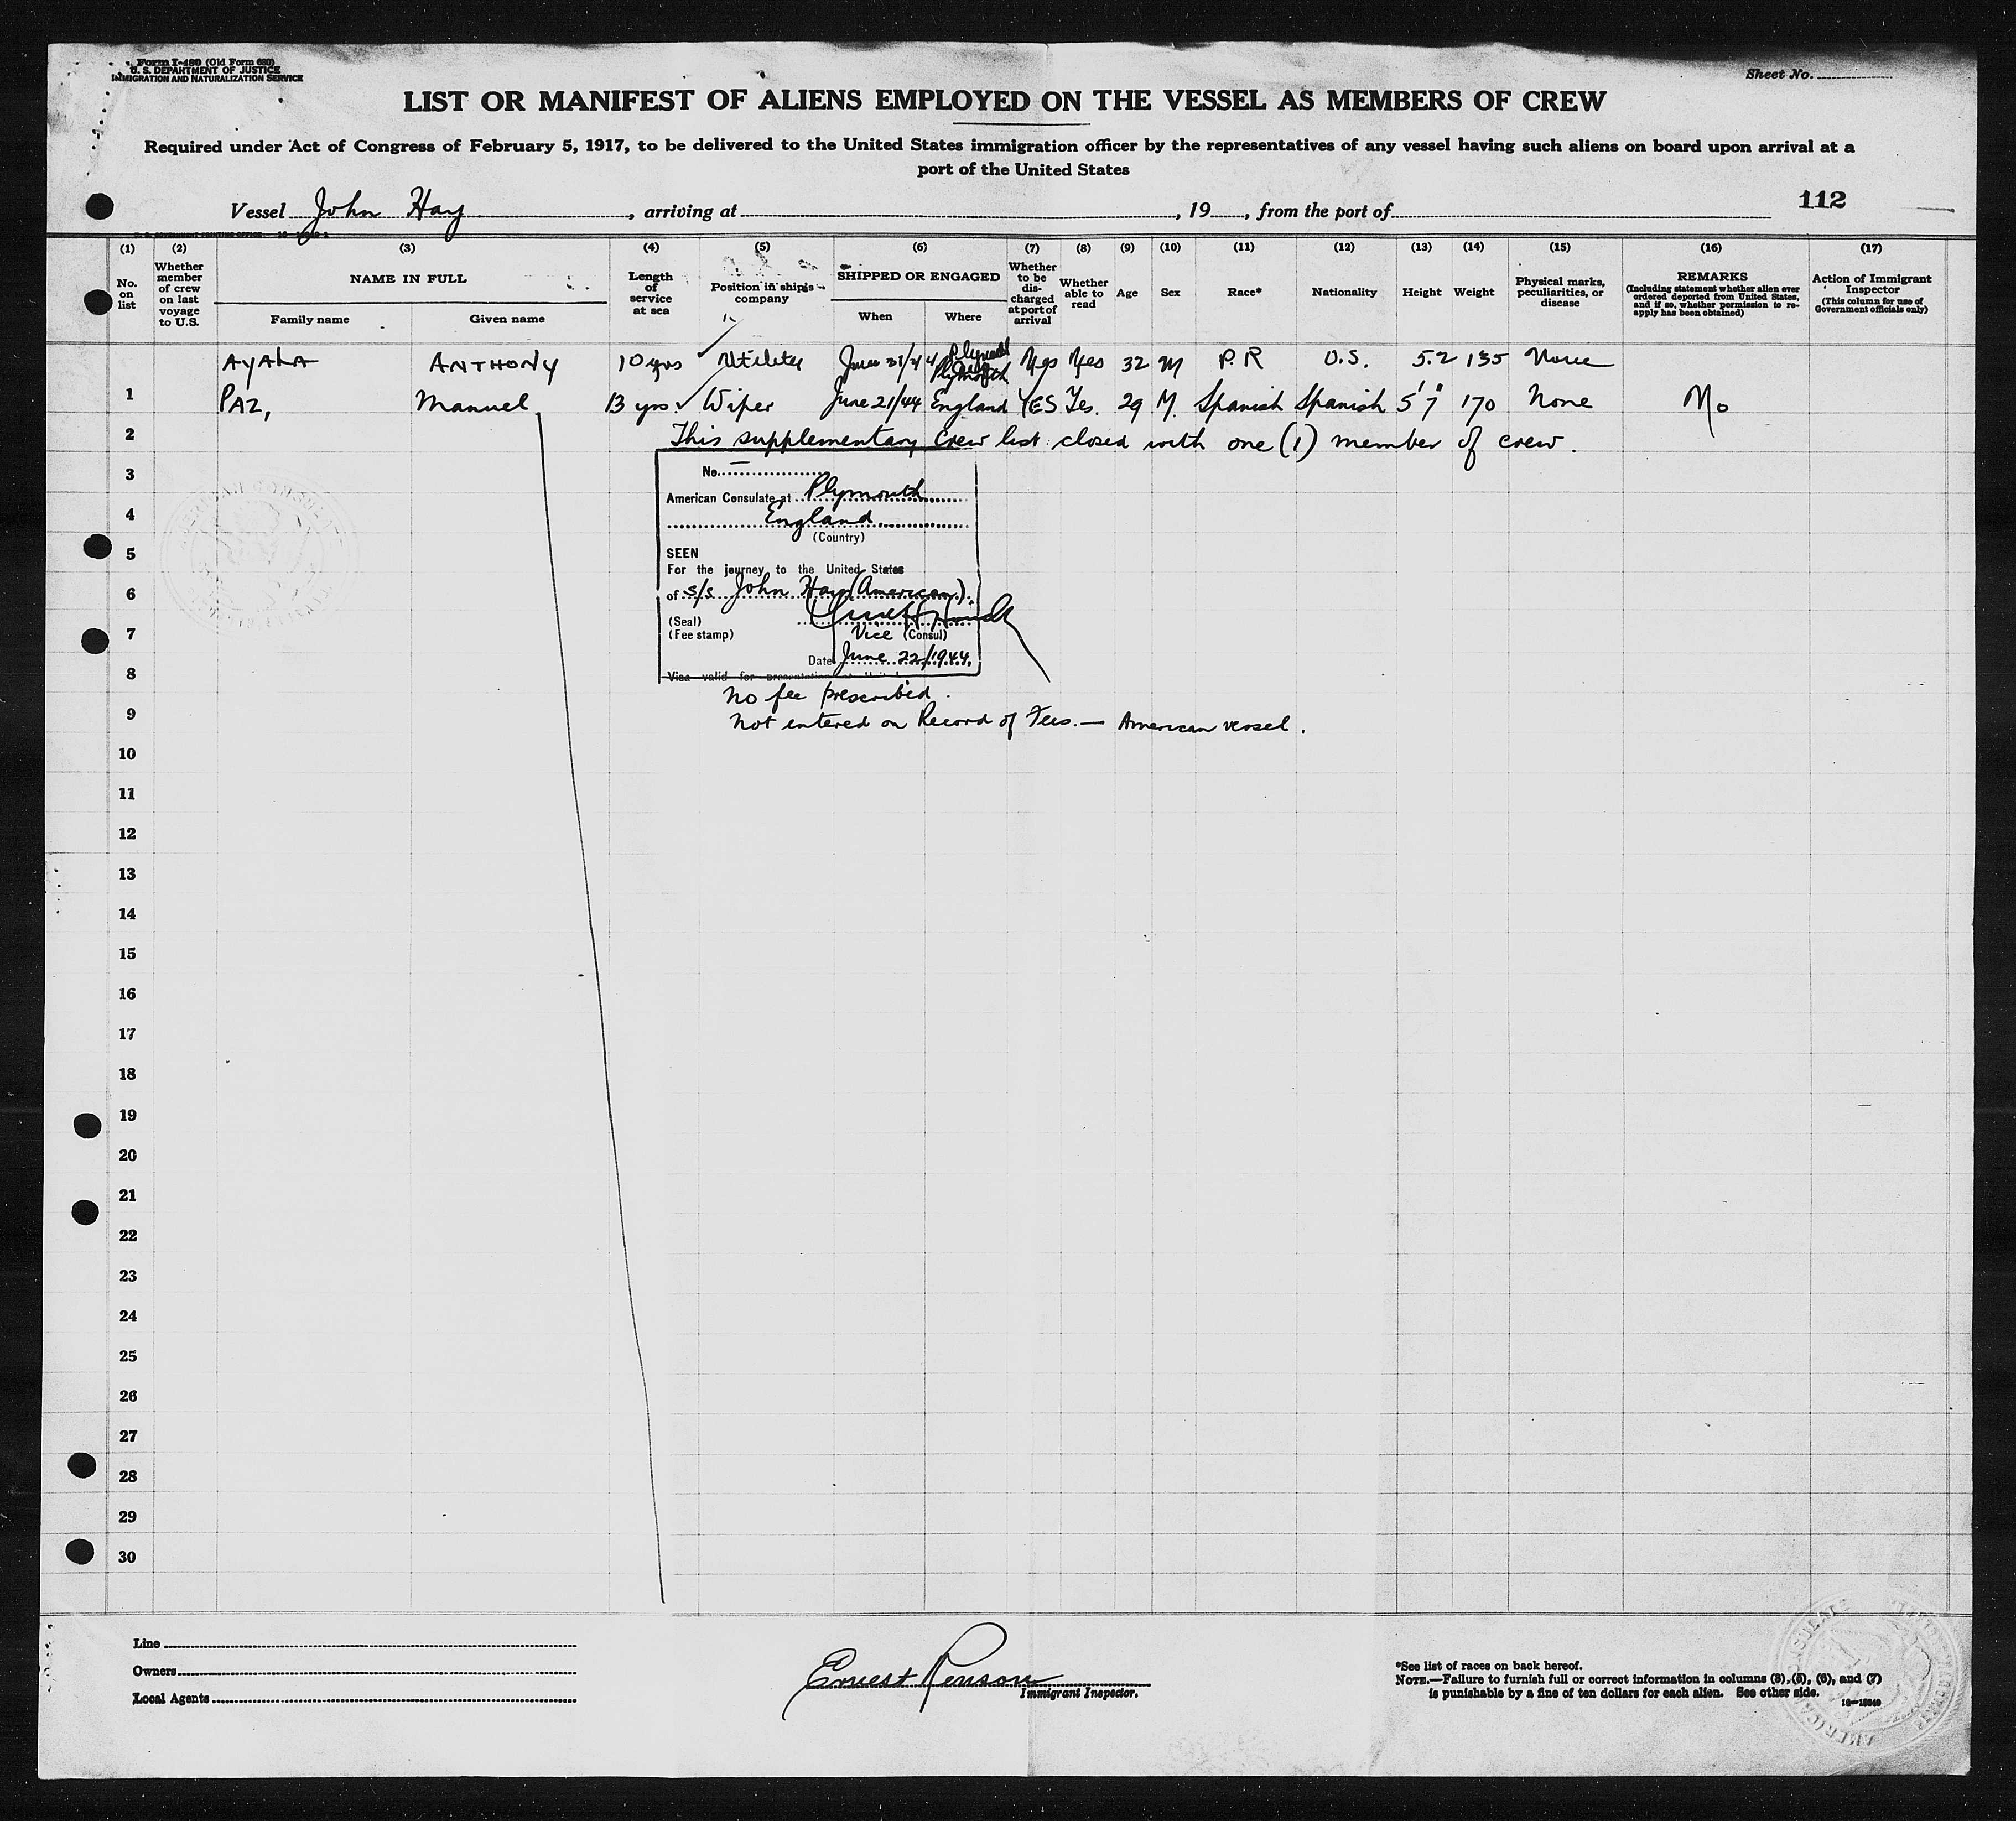 Form I-480 (Old Form 680)
U. S. DEPARTMENT OF JUSTICE
IMMIGRATION AND NATURALIZATION SERVICE
Sheet No.
LIST OR MANIFEST OF ALIENS EMPLOYED ON THE VESSEL AS MEMBERS OF CREW
Required under Act of Congress of February 5, 1917, to be delivered to the United States immigration officer by the representatives of any vessel having such aliens on board upon arrival at a
port of the United States
Vessel John Hay, arriving at, 19, from the port of 112
(1) (2) (3) (4) (5) (6) (7) (8) (9) (10) (11) (12) (13) (14) (15) (16) (17)
No. on list
Whether member of crew on last voyage to U.S.
NAME IN FULL
Family name Given name
Length of service at sea
Position in ship's company
SHIPPED OR ENGAGED
When Where
Whether to be discharged at port of arrival
Whether able to read
Age
Sex
Race*
Nationality
Height
Weight
Physical marks, peculiarities, or disease
REMARKS
(Including statement whether alien ever ordered deported from United States, and if so, whether permission to reapply has been obtained)
Action of Immigrant Inspector
(This column for use of Government officials only)
AYALA ANTHONY 10 yrs Utility June 21/44 Plymouth Yes Yes 32 M P.R U.S. 5.2 135 None
1 PAZ, Manuel 13 yrs. Wiper June 21/44 Plymouth England YES Yes. 29 M. Spanish Spanish 5'7" 170 None No
2 This supplementary crew list closed with one (1) member of crew.
3 No.
American Consulate at Plymouth
4 England
(Country)
5 SEEN
For the journey to the United States
6 of S/S John Hay (American).
(Seal)
7 (Fee stamp) Vice (Consul)
Date June 22/1944.
8 Visa valid for presentation
No fee prescribed.
9 Not entered on Record of Fees. — American vessel.
10
11
12
13
14
15
16
17
18
19
20
21
22
23
24
25
26
27
28
29
30
Line
Owners
Local Agents
Ernest Renson
Immigrant Inspector.
*See list of races on back hereof.
NOTE.—Failure to furnish full or correct information in columns (3), (5), (6), and (7)
is punishable by a fine of ten dollars for each alien. See other side.